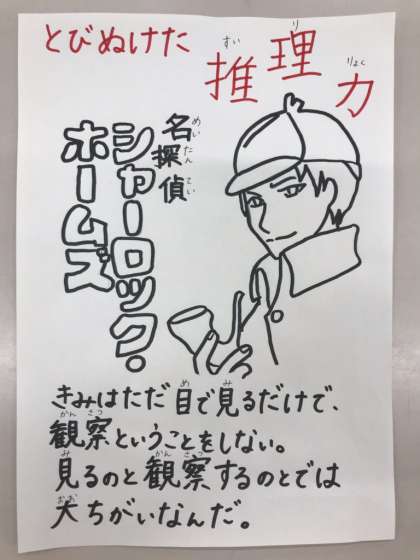 とびぬけた
推理力
すい り りょく
名探偵
めい たん てい
シャーロック・
ホームズ
きみはただ目で見るだけで、
め み
観察ということをしない。
かん さつ
見るのと観察するのとでは
み かん さつ
大ちがいなんだ。
おお